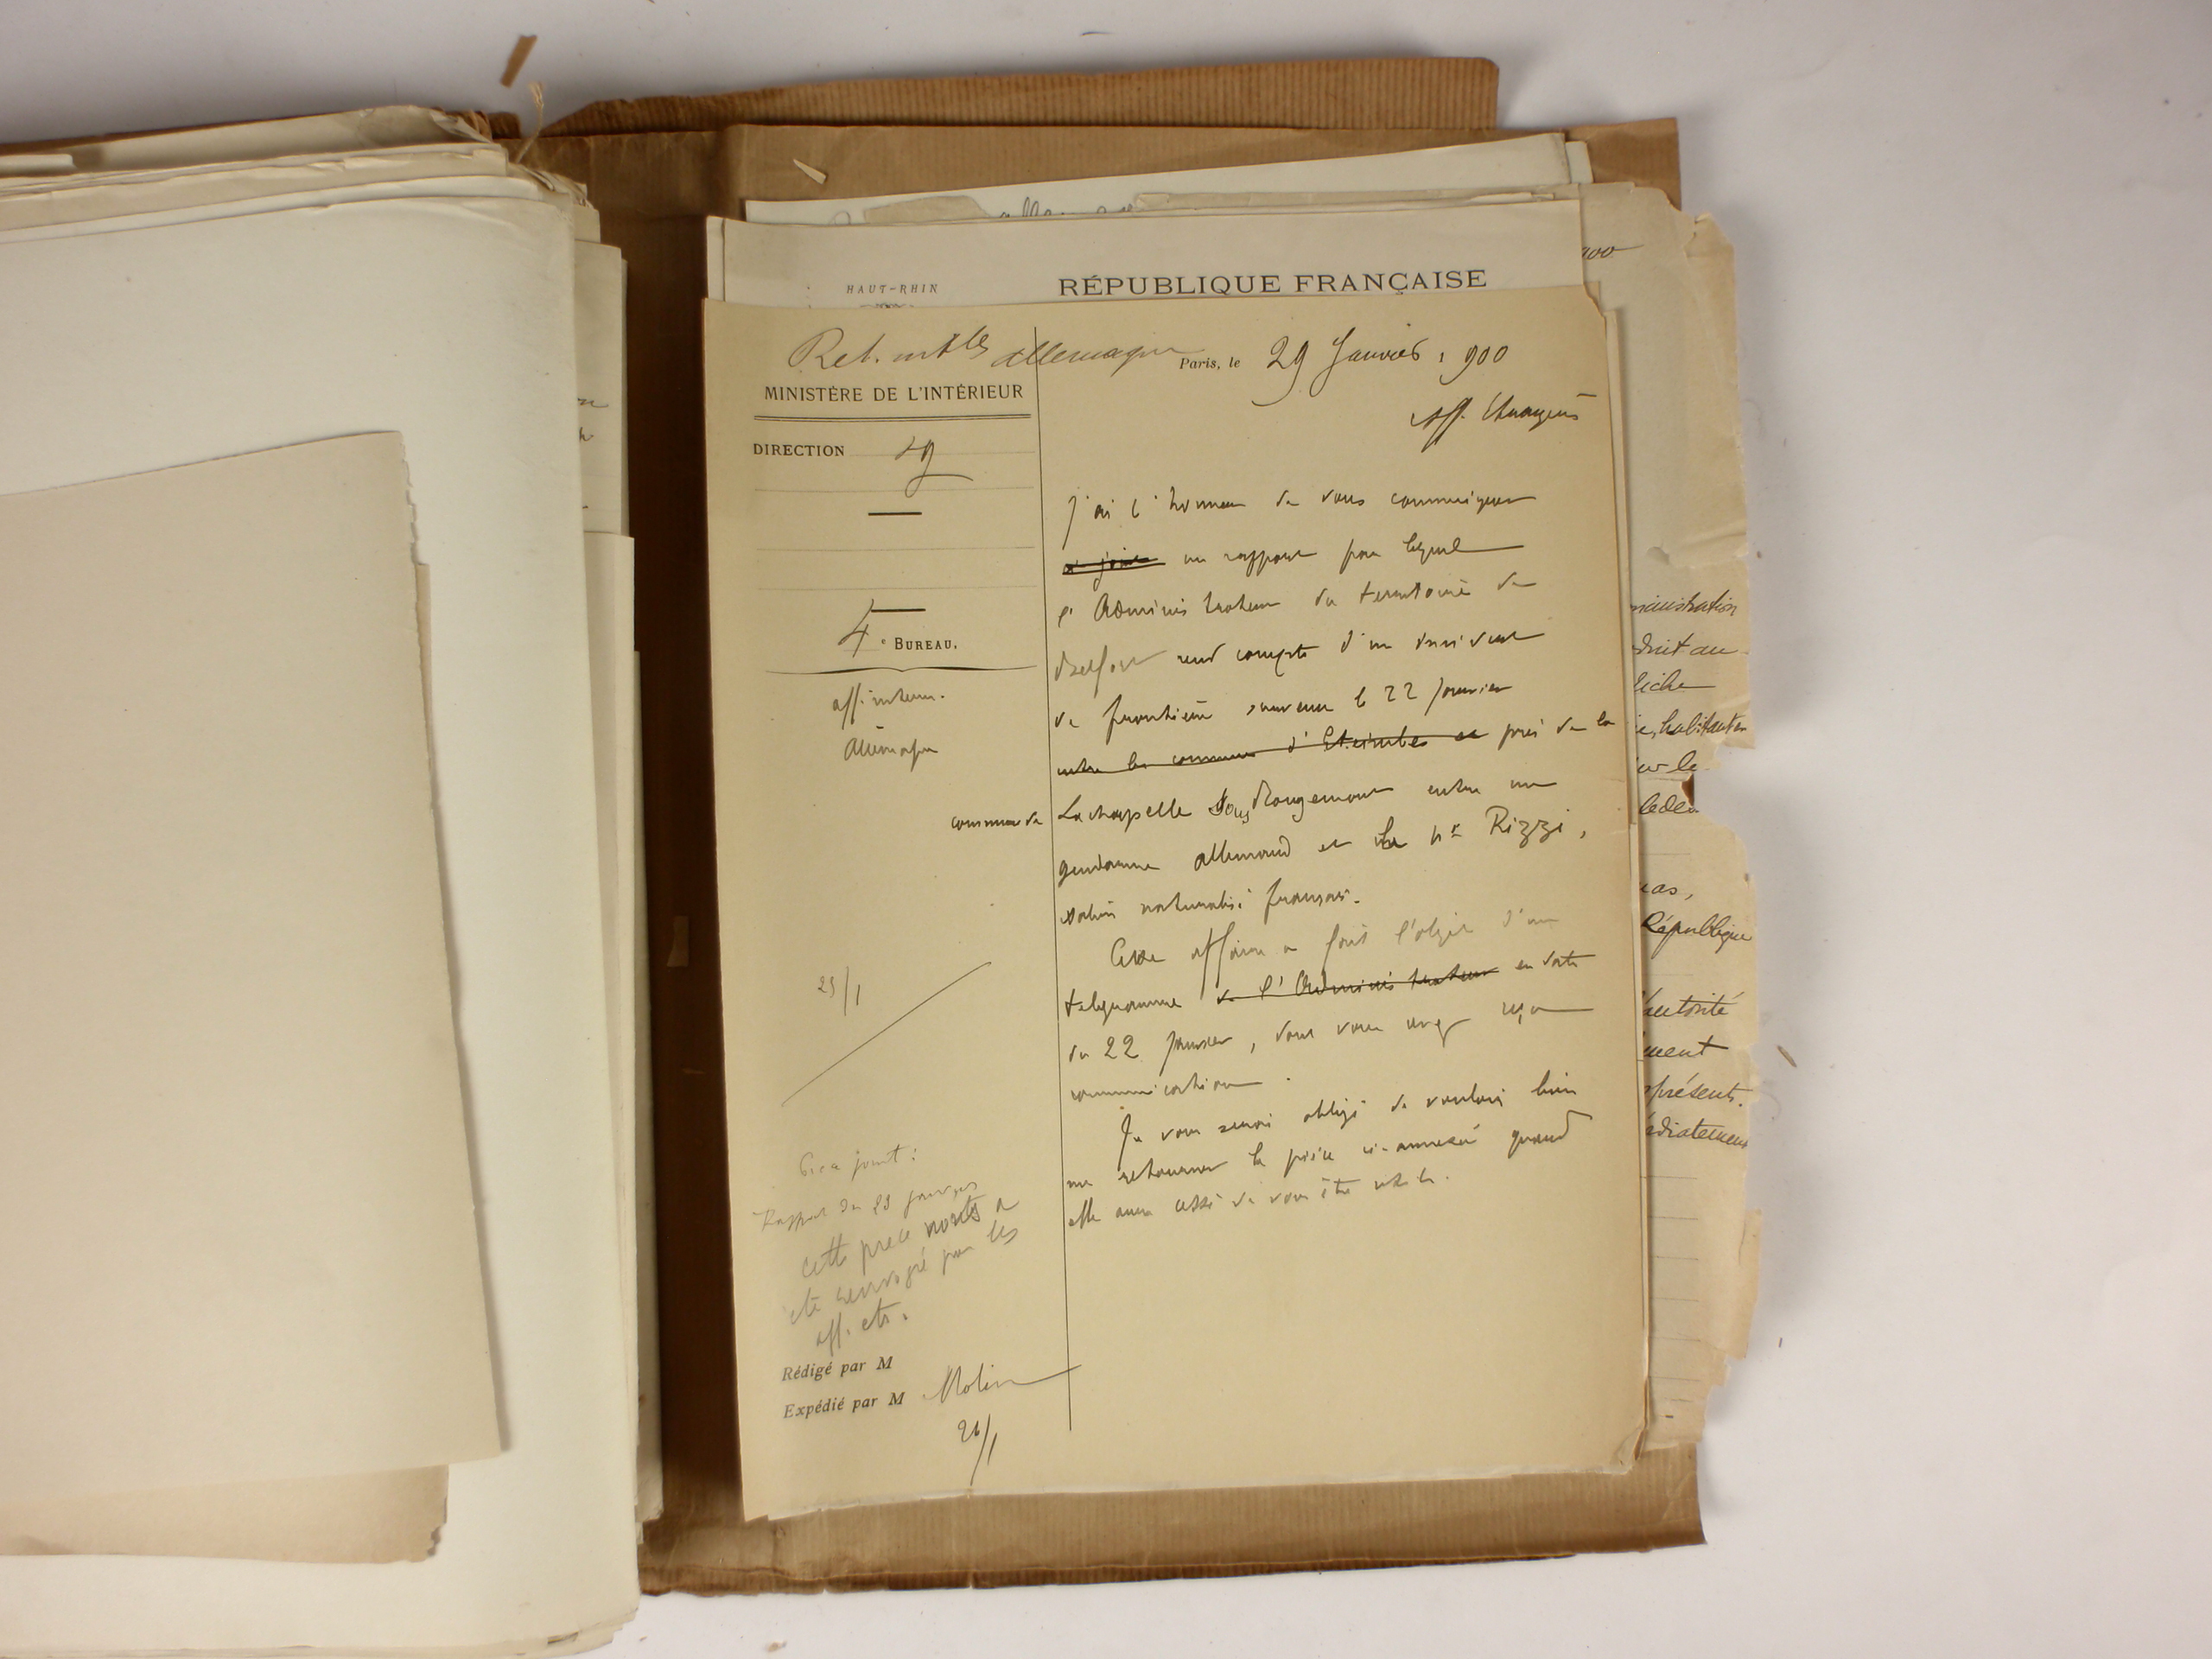 900
HAUT-RHIN
RÉPUBLIQUE FRANÇAISE
Rel. intles Allemagne
Paris, le 29 Janvier 1900
MINISTÈRE DE L'INTÉRIEUR
Aff. Etrangères
DIRECTION Sg
4e BUREAU.
aff. intern.
Allemagne
J'ai l'honneur de vous communiquer
ci-joint un rapport par lequel
l'Administrateur du territoire de
Belfort rend compte d'un incident
de frontière survenu le 22 Janvier
entre les communes d'Eteimbes et près de la
commune de Lachapelle sous Rougemont entre un
gendarme allemand et le Sr Rizzi,
italien naturalisé français.
Cette affaire a fait l'objet d'un
télégramme de l'Administrateur en date
du 22 Janvier, dont vous avez reçu
communication.
Je vous serais obligé de vouloir bien
me retourner la pièce ci-annexée quand
elle aura cessé de vous être utile.
29/1
Pièce jointe:
Rapport du 23 janvier
cette pièce nous a
été renvoyée par les
aff. etr.
Rédigé par M
Expédié par M Molin
26/1
ministration
habitants
République
autorité
présents.